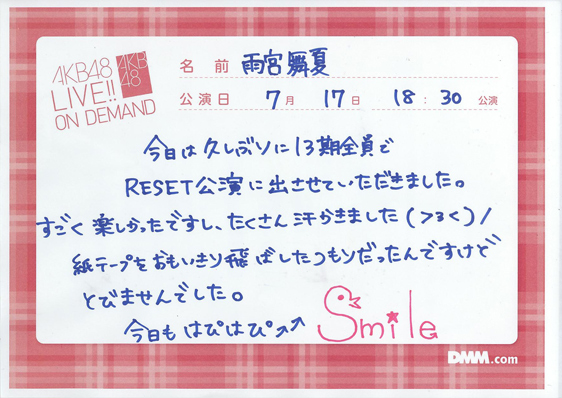 AKB48
LIVE!!
ON DEMAND
AKB
48
名 前 雨宮舞夏
公演日 7月 17日 18:30 公演
今日は久しぶりに13期全員で
RESET公演に出させていただきました。
すごく楽しかったですし、たくさん汗かきました(>з<)/
紙テープをおもいきり飛ばしたつもりだったんですけど
とびませんでした。
今日もはぴはぴ↗↗ Smile
DMM.com